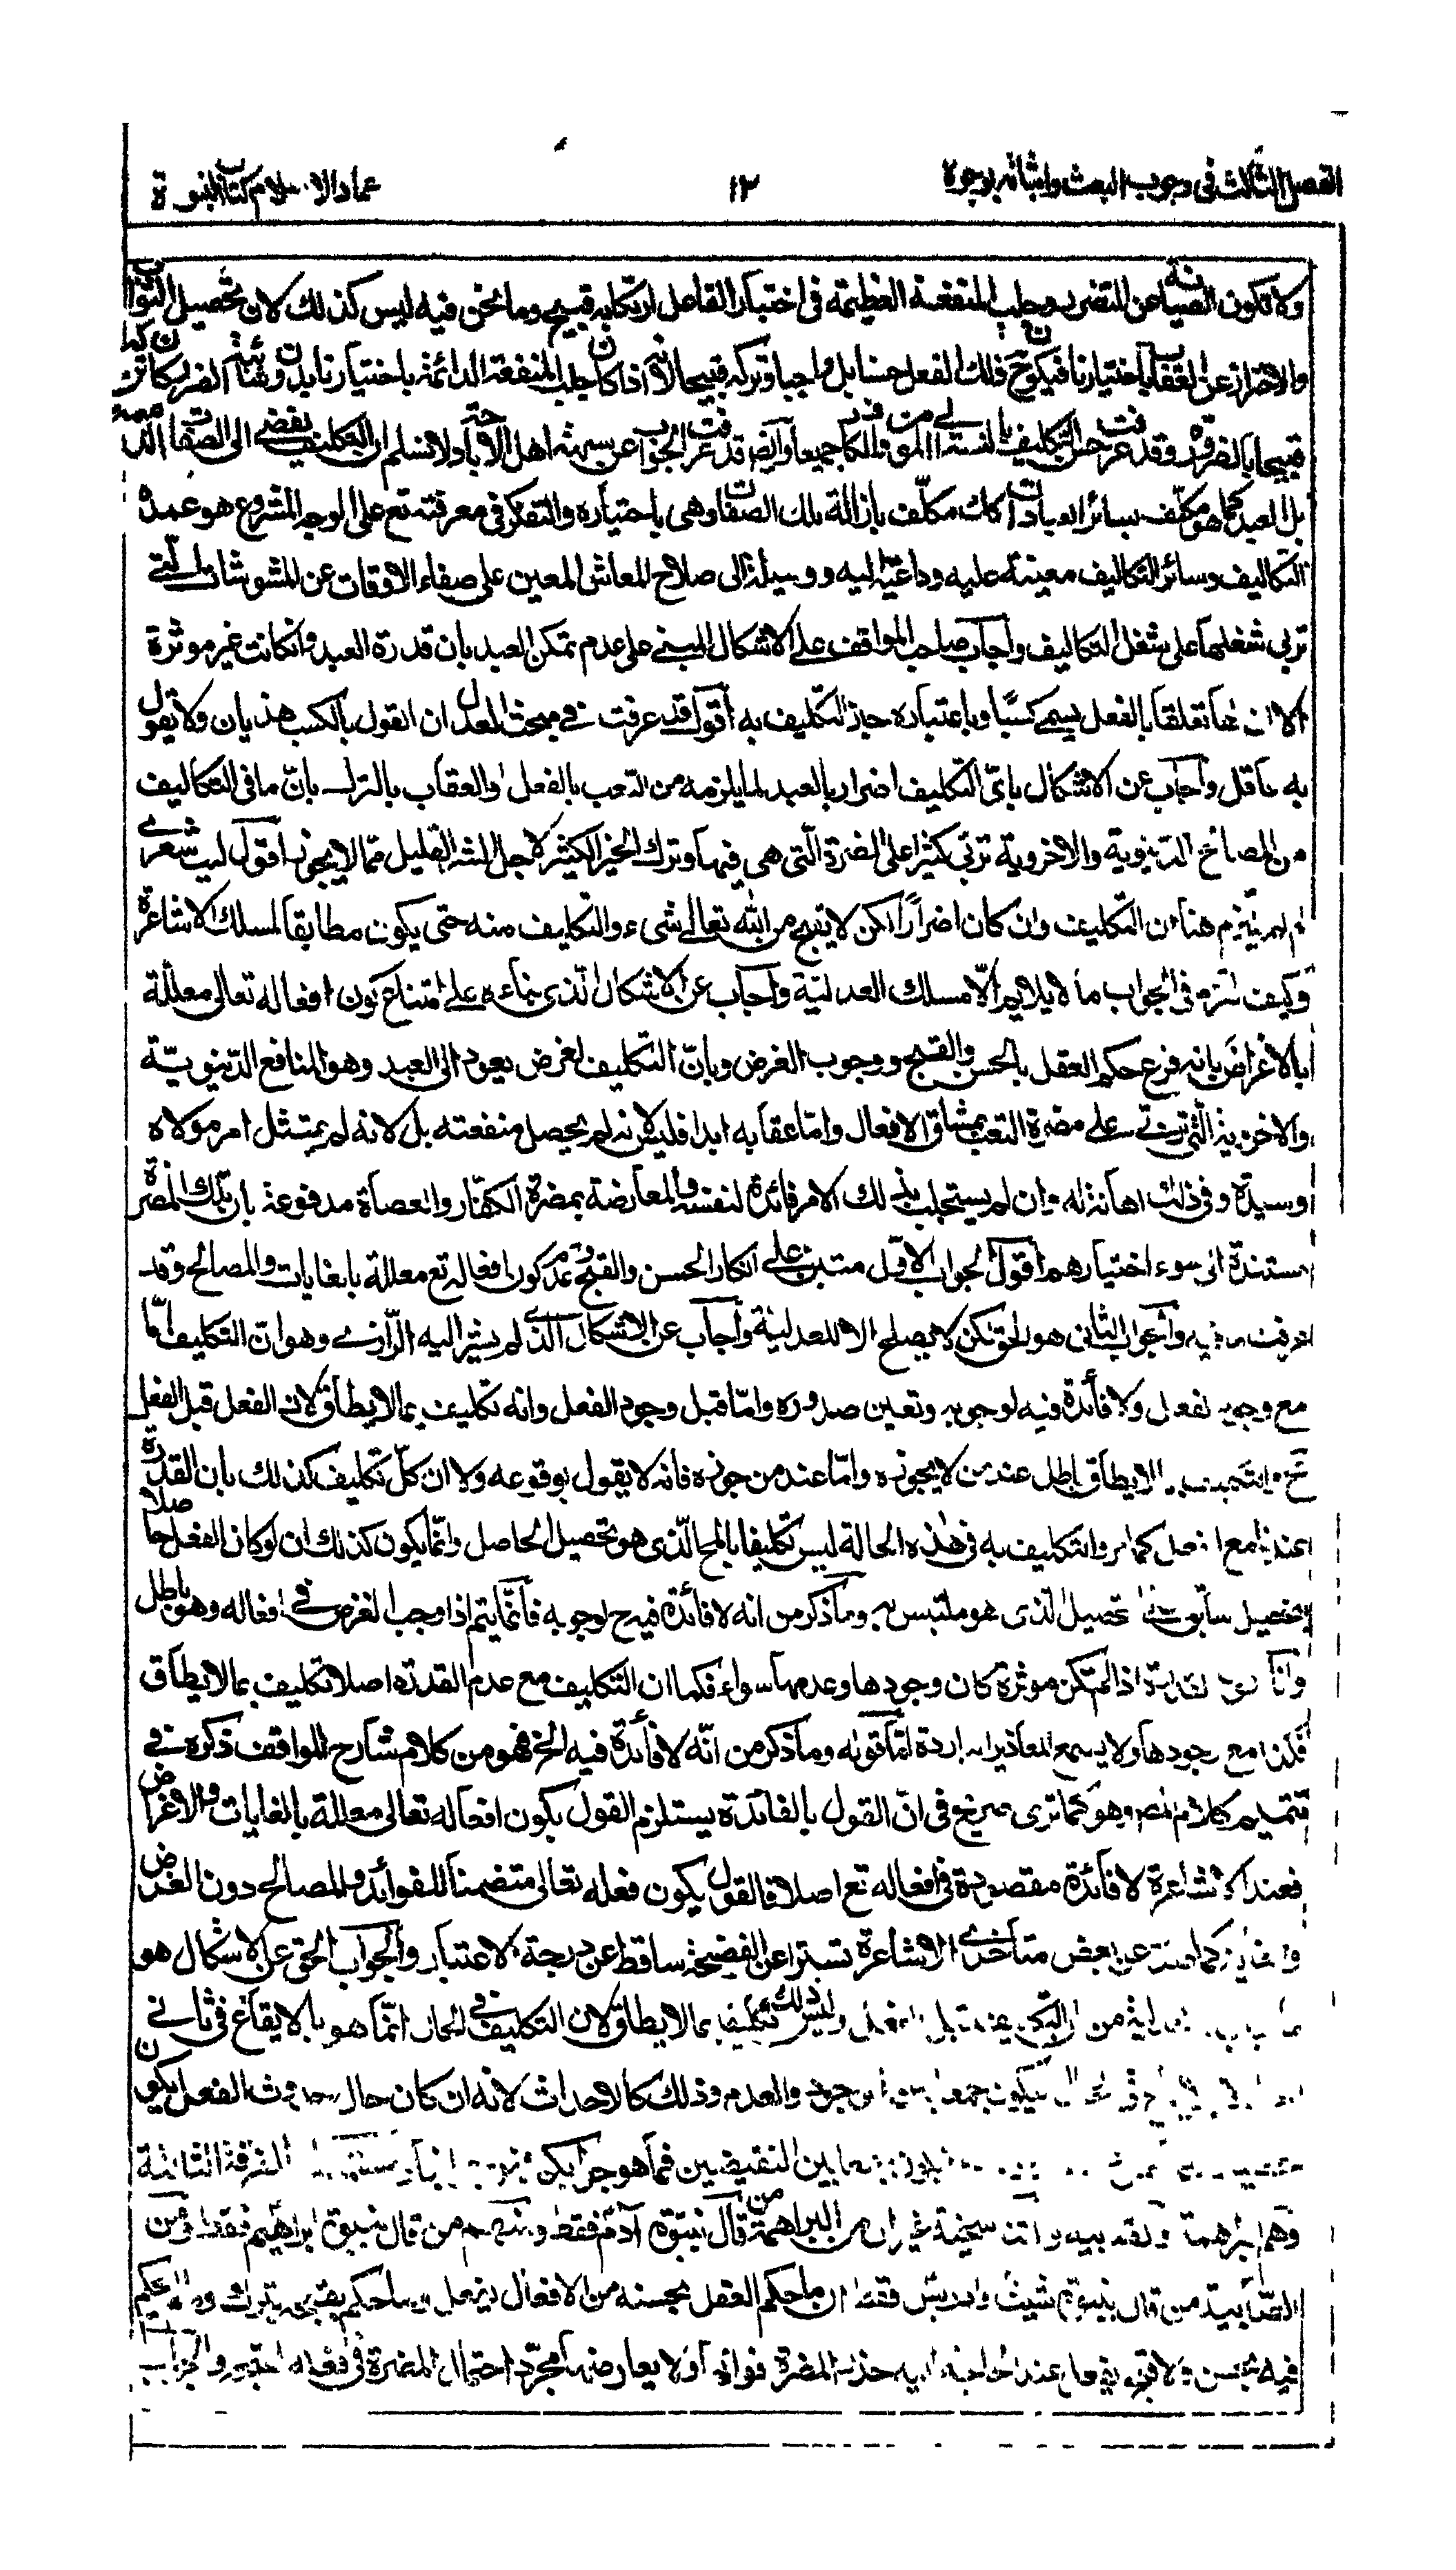 الفصل الثالث فى وجوب البعث واثباته بوجوه ١٢ عماد الاسلام كتاب النبوة
ولا تكون الصيانة عن التضرر وجلب المنفعة العظيمة فى اختيار الفاعل ارتكابه قبيح وما نحن فيه ليس كذلك لان تحصيل الثواب
والاحتراز عن العقاب باختيارنا فيكون ح ذلك الفعل حسنا بل واجبا وتركه قبيحا لانه اذا كان جلب المنفعة الدائمة باختيارنا بدون شائبة الضرر كان تركه
قبيحا بالضرورة وقد عرفت حسن التكليف بالنسبة الى المؤمن والكافر جميعا وايضا قد عرفت الجواب عن شبهة اهل الاباحة ولا نسلم ان التكليف يفضى الى الصفات
بل العبد كما هو مكلف بسائر العبادات كذلك مكلف بازالة تلك الصفات وهى باختياره والتفكر فى معرفته تع على الوجه المشروع هو عمدة
التكاليف وسائر التكاليف معينة عليه وداعية اليه ووسيلة الى صلاح المعاش المعين على صفاء الاوقات عن المشوشات التى
تربى شغلها على شغل التكاليف واجاب صاحب المواقف على الاشكال المبنى على عدم تمكن العبد بان قدرة العبد وان كانت غير موثرة
الا ان لها تعلقا بالفعل يسمى كسبا وباعتباره جاز التكليف به اقول قد عرفت فى مبحث العدل ان القول بالكسب هذيان ولا يقول
به عاقل واجاب عن الاشكال بان التكليف اضرار بالعبد لما يلزمه من التعب بالفعل والعقاب بالترك بان ما فى التكاليف
من المصالح الدنيوية والاخروية تربى كثيرا على المضرة التى هى فيها وترك الخير الكثير لاجل الشر القليل مما لا يجوز اقول ليت شعرى
لم لم يلتزم هنا ان التكليف وان كان اضرارا لكن لا يقبح من الله تعالى شىء والتكليف منه حتى يكون مطابقا لمسلك الاشاعرة
وكيف التزم فى الجواب ما لا يلايم الا مسلك العدلية واجاب عن الاشكال الذى بناءه على امتناع كون افعاله تعالى معللة
بالاغراض بانه فرع حكم العقل بالحسن والقبح ووجوب الغرض وبان التكليف لغرض يعود الى العبد وهو المنافع الدنيوية
والاخروية التى تربى على مضرة التعب بمشاق الافعال واما عقابه ابدا فليس لانه لم يحصل منفعته بل لانه لم يمتثل امر مولاه
وسيده وفى ذلك اهانة له وان لم يستجلب بذلك الامر فائدة لنفسه والمعارضة بمضرة الكفار والعصاة مدفوعة بان تلك المضرة
مستندة الى سوء اختيارهم اقول الجواب الاول مبتن على انكار الحسن والقبح وعدم كون افعاله تع معللة بالغايات والمصالح وقد
عرفت ما فيه والجواب الثانى هو الحق لكن لا يصلح الا للعدلية واجاب عن الاشكال الذى لم يشر اليه الرازى وهو ان التكليف اما
مع وجود الفعل ولا فائدة فيه لوجوبه وتعين صدوره واما قبل وجود الفعل وانه تكليف بما لا يطاق لان الفعل قبل الفعل
مح والتكليف بما لا يطاق باطل عند من لا يجوزه واما عند من جوزه فانه لا يقول بوقوعه ولا ان كل تكليف كذلك بان القدرة
عندنا مع الفعل كما مر والتكليف به فى هذه الحالة ليس تكليفا بالمحال الذى هو تحصيل الحاصل وانما يكون كذلك ان لو كان الفعل حاصلا
بتحصيل سابق على تحصيل الذى هو ملتبس به وما ذكر من انه لا فائدة فيه ح لوجوبه فانما يتم اذا وجب الغرض فى افعاله وهو باطل
القدرة اذا لم تكن موثرة كان وجودها وعدمها سواء فكما ان التكليف مع عدم القدرة اصلا تكليف بما لا يطاق
فكذا مع وجودها ولا يسمع المعاذير الباردة اما قوله وما ذكر من انه لا فائدة فيه الخ فهو من كلام شارح المواقف ذكره فى
تتميم كلام المص وهو كما ترى صريح فى ان القول بالفائدة يستلزم القول بكون افعاله تعالى معللة بالغايات والاغراض
فعند الاشاعرة لا فائدة مقصودة فى افعاله تع اصلا فالقول بكون فعله تعالى متضمنا للفوائد والمصالح دون الغرض
كما صدر عن بعض متاخرى الاشاعرة تسترا عن الفضيحة ساقط عن درجة الاعتبار والجواب الحق عن الاشكال هو
من ان التكليف قبل الفعل وليس ذلك تكليفا بما لا يطاق لان التكليف فى الحال انما هو بالايقاع فى ثانى
الحال فيكون جمعا بين الوجود والعدم وذلك كالاحداث لانه ان كان حال حدوث الفعل يكون
بين النقيضين فما هو جوابكم الفرقة الثانية
وهم البراهمة من البراهمة من قال بنبوة آدم فقط ومنهم من قال بنبوة ابراهيم فقط ومن
الصابئية من قال بنبوة شيث وادريس فقط ان ما حكم العقل بحسنه من الافعال يفعل وما حكم بقبحه يترك وما لم يحكم
فيه بحسن ولا قبح يفعل عند الحاجة اليه حذر المضرة فواته ولا يعارضها مجرد احتمال المضرة فى فعله والجواب